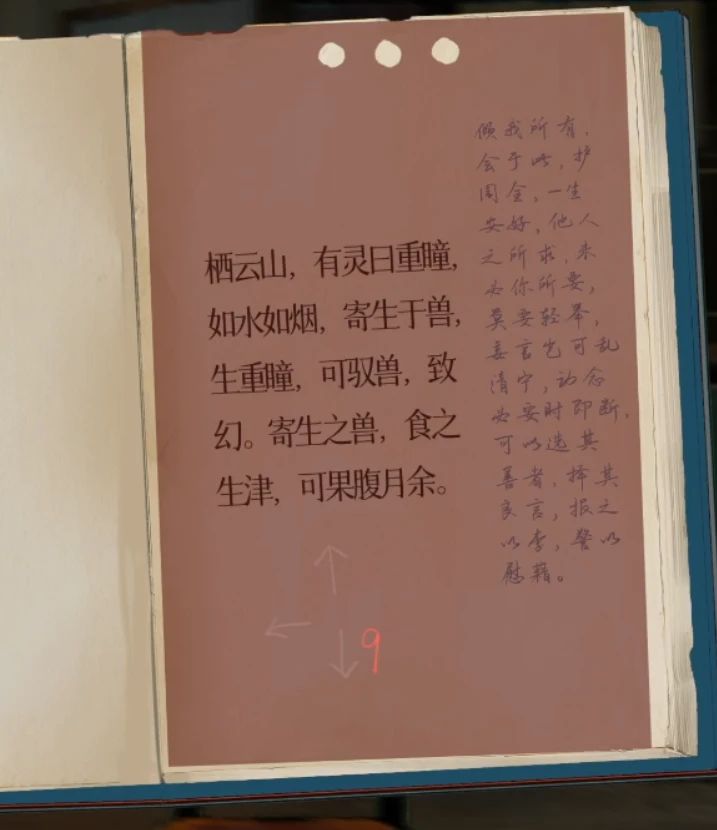 栖云山，有灵曰重瞳，
如水如烟，寄生于兽，
生重瞳，可驭兽，致
幻。寄生之兽，食之
生津，可果腹月余。
倾我所有，
会于此，护
周全，一生
安好，他人
之所求，未
必你所要，
莫要轻举，
妄言岂可乱
清宁，动念
必要时即断，
可以选其
善者，择其
良言，报之
以李，誉以
慰藉。
9